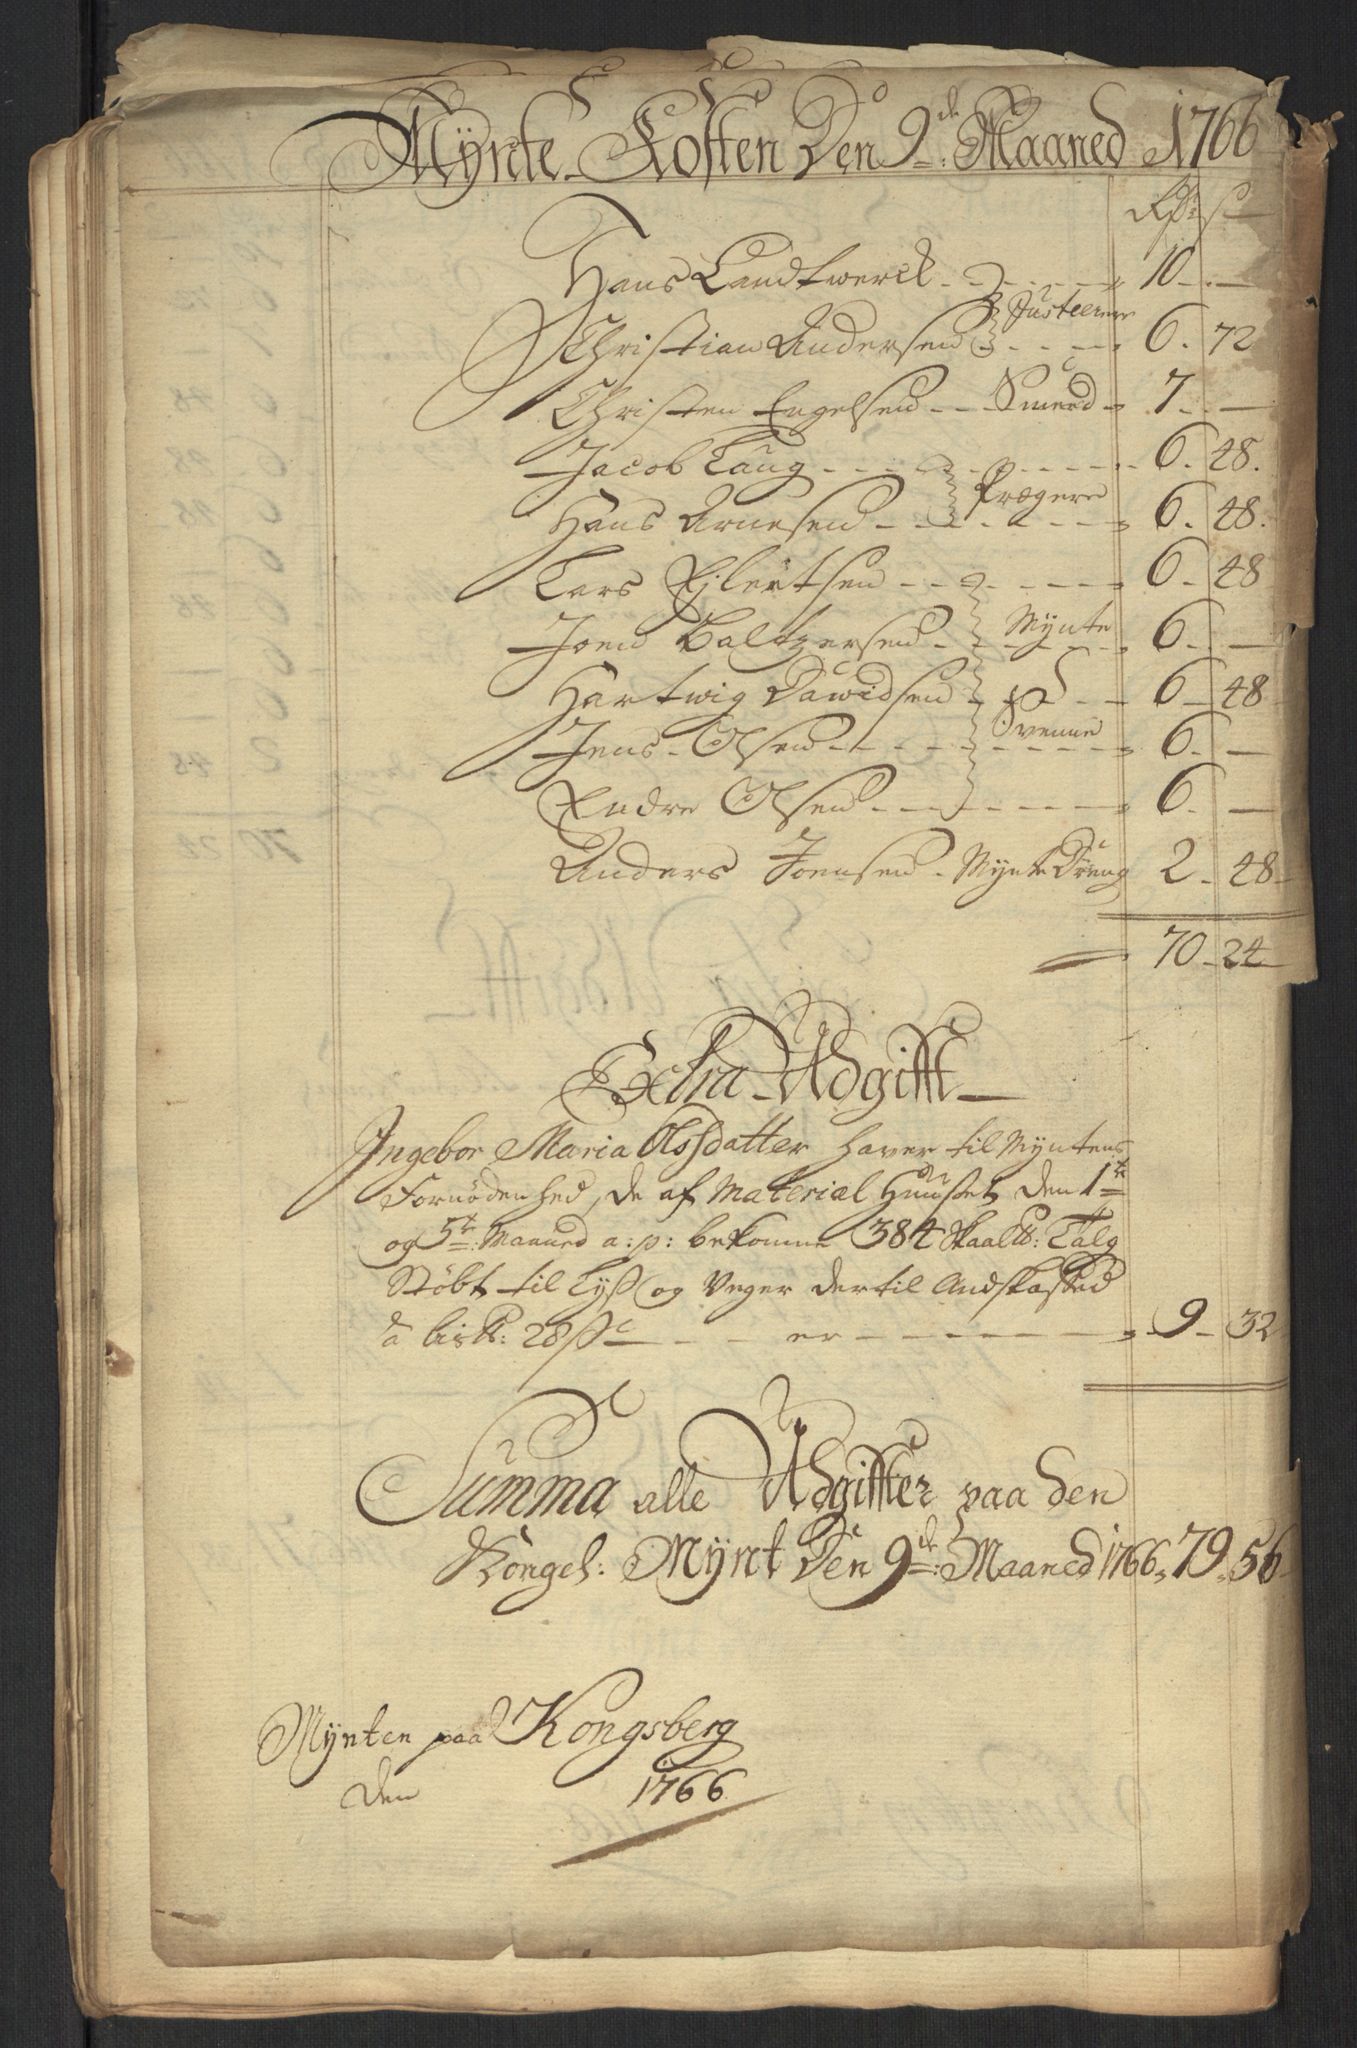 Mÿnte-Kosten Den 9de: Maaned 1766
Rdr: s
Hans Landtwerck - - - 10 - -
Justeerere
Christian Andersen - - - 6 - 72
Christen Engelsen - - Smeed - 7 - -
Jacob Laug - - - 6 - 48.
Prægere
Hans Arnesen - - - 6 - 48.
Lars Ejlertsen - - - 6 - 48
Joen Baltzersen - Mÿnte - 6 - -
Hartwig Dawidsen - - - 6 - 48
Jens Olsen - - - Svenne - 6 - -
Endre Olsen - - - 6 - -
Anders Joensen - Mÿnte Dreng 2 - 48
70 - 24
Extra-Udgifft
Ingebor Maria Olssdatter haver til Myntens
Fornødenhed, de af Material Huuset den 1te
og 5te: Maaned a: p: bekomne 384 Skaal ℔: Talg
Støbt til Lyß og Veger dertil Andskaffed
a bis℔: 28 ß - - er - - - 9 - 32
Summa alle Udgiffter paa den
Kongel: Mÿnt Den 9de: Maaned 1766, 79 - 56
Mÿnten paa Kongsberg
den 1766